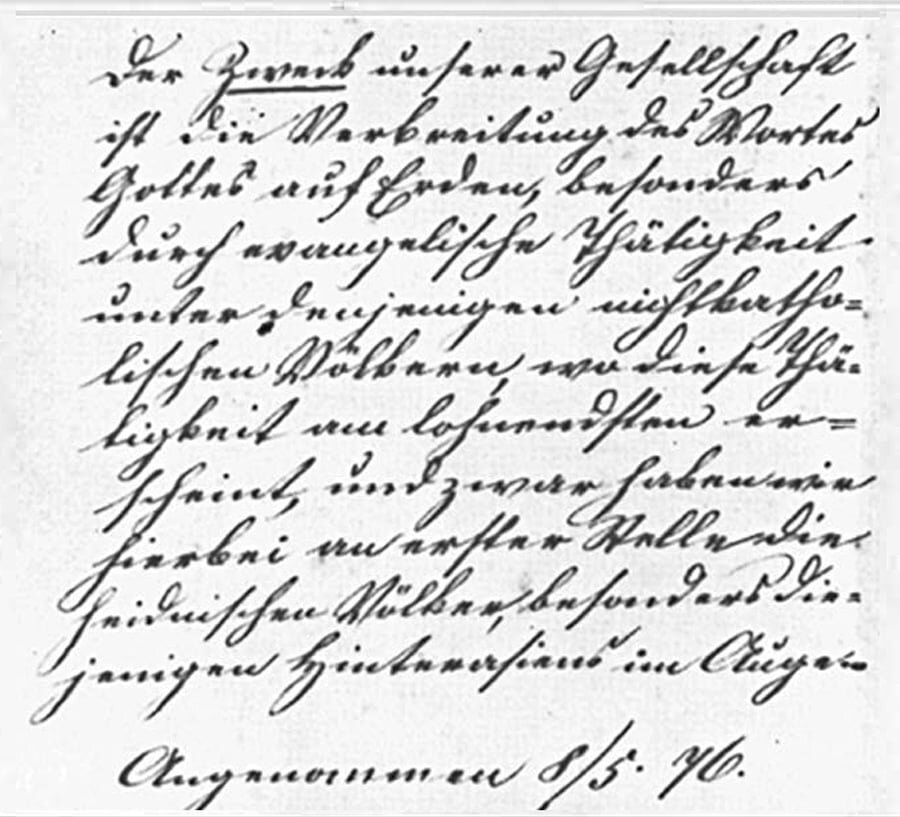 Der Zweck unserer Gesellschaft
ist die Verbreitung des Wortes
Gottes auf Erden, besonders
durch evangelische Thätigkeit
unter denjenigen nichtkatho=
lischen Völkern, wo diese Thä=
tigkeit am lohnendsten er=
scheint, und zwar haben wir
hierbei an erster Stelle die
heidnischen Völker, besonders die=
jenigen Hinterasiens im Auge.
Angenommen 8/5. 76.